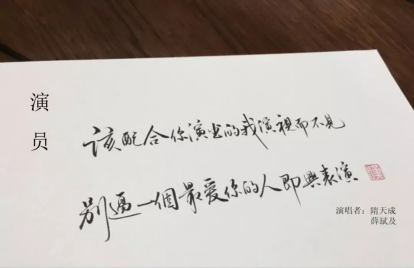 演员
该配合你演出的我演视而不见
别逼一個最爱你的人即興表演
演唱者：隋天成
薛斌及